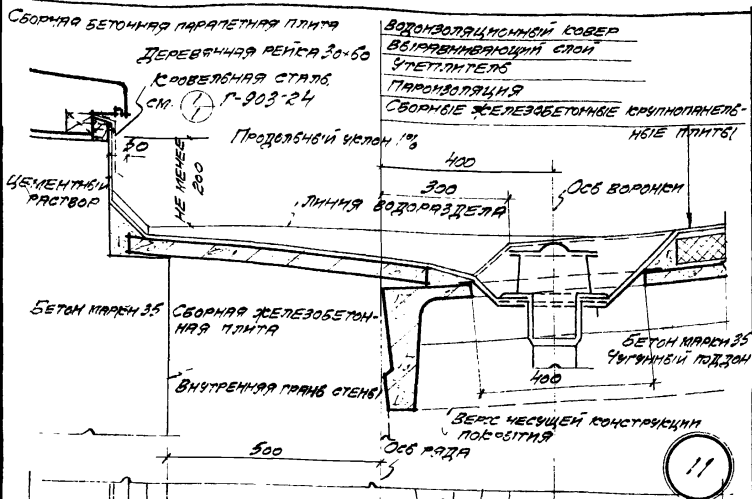 СБОРНАЯ БЕТОННАЯ ПАРАПЕТНАЯ ПЛИТА
ДЕРЕВЯННАЯ РЕЙКА 30×60
КРОВЕЛЬНАЯ СТАЛЬ,
СМ. Г-903-24
ВОДОИЗОЛЯЦИОННЫЙ КОВЕР
ВЫРАВНИВАЮЩИЙ СЛОЙ
УТЕПЛИТЕЛЬ
ПАРОИЗОЛЯЦИЯ
СБОРНЫЕ ЖЕЛЕЗОБЕТОННЫЕ КРУПНОПАНЕЛЬ-
НЫЕ ПЛИТЫ
ПРОДОЛЬНЫЙ УКЛОН 1%
50
НЕ МЕНЕЕ
200
400
300
ОСЬ ВОРОНКИ
ЦЕМЕНТНЫЙ
РАСТВОР
ЛИНИЯ ВОДОРАЗДЕЛА
БЕТОН МАРКИ 35
СБОРНАЯ ЖЕЛЕЗОБЕТОН-
НАЯ ПЛИТА
БЕТОН МАРКИ 35
ЧУГУННЫЙ ПОДДОН
400
ВНУТРЕННЯЯ ГРАНЬ СТЕНЫ
ВЕРХ НЕСУЩЕЙ КОНСТРУКЦИИ
ПОКРЫТИЯ
500
ОСЬ РЯДА
11